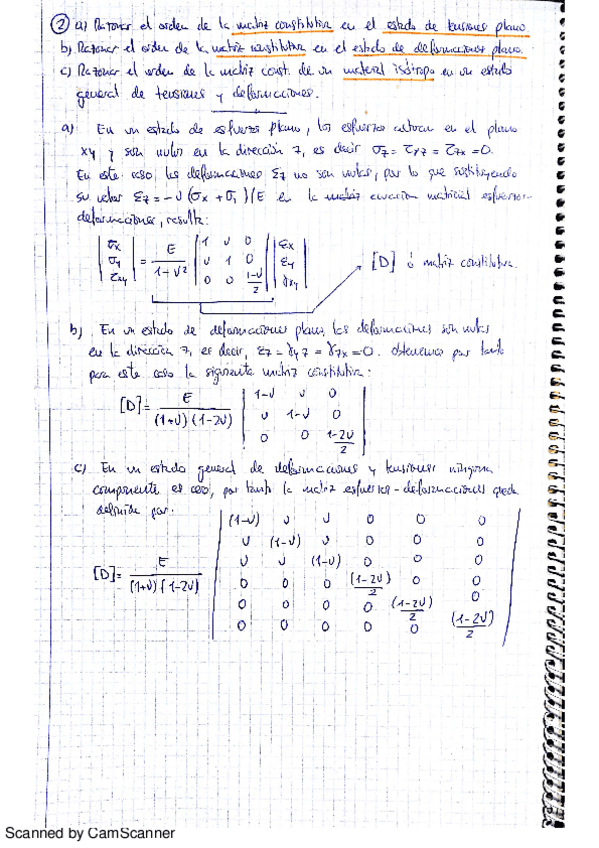 ② a) Razonar el orden de la matriz constitutiva en el estado de tensiones plano.
b) Razonar el orden de la matriz constitutiva en el estado de deformaciones plano.
c) Razonar el orden de la matriz const. de un material isótropo en un estado
general de tensiones y deformaciones.
a) En un estado de esfuerzo plano, los esfuerzos actúan en el plano
xy y son nulos en la dirección z, es decir σz = τyz = τzx = 0.
En este caso, las deformaciones εz no son nulas, por lo que sustituyendo
su valor εz = -ν (σx + σy)/E en la matriz ecuación matricial esfuerzo-
deformaciones, resulta:
| σx | | 1 ν 0 | | εx |
| σy | = E/(1-ν²) | ν 1 0 | | εy | → [D] ó matriz constitutiva.
| τxy | | 0 0 (1-ν)/2 | | γxy |
b) En un estado de deformaciones plano, las deformaciones son nulas
en la dirección z, es decir, εz = γyz = γzx = 0. Obtenemos por tanto
para este caso la siguiente matriz constitutiva:
| 1-ν ν 0 |
[D] = E/((1+ν)(1-2ν)) | ν 1-ν 0 |
| 0 0 (1-2ν)/2 |
c) En un estado general de deformaciones y tensiones ninguna
componente es cero, por tanto la matriz esfuerzos-deformaciones queda
definida por:
| (1-ν) ν ν 0 0 0 |
| ν (1-ν) ν 0 0 0 |
| ν ν (1-ν) 0 0 0 |
[D] = E/((1+ν)(1-2ν)) | 0 0 0 (1-2ν)/2 0 0 |
| 0 0 0 0 (1-2ν)/2 0 |
| 0 0 0 0 0 (1-2ν)/2 |
Scanned by CamScanner